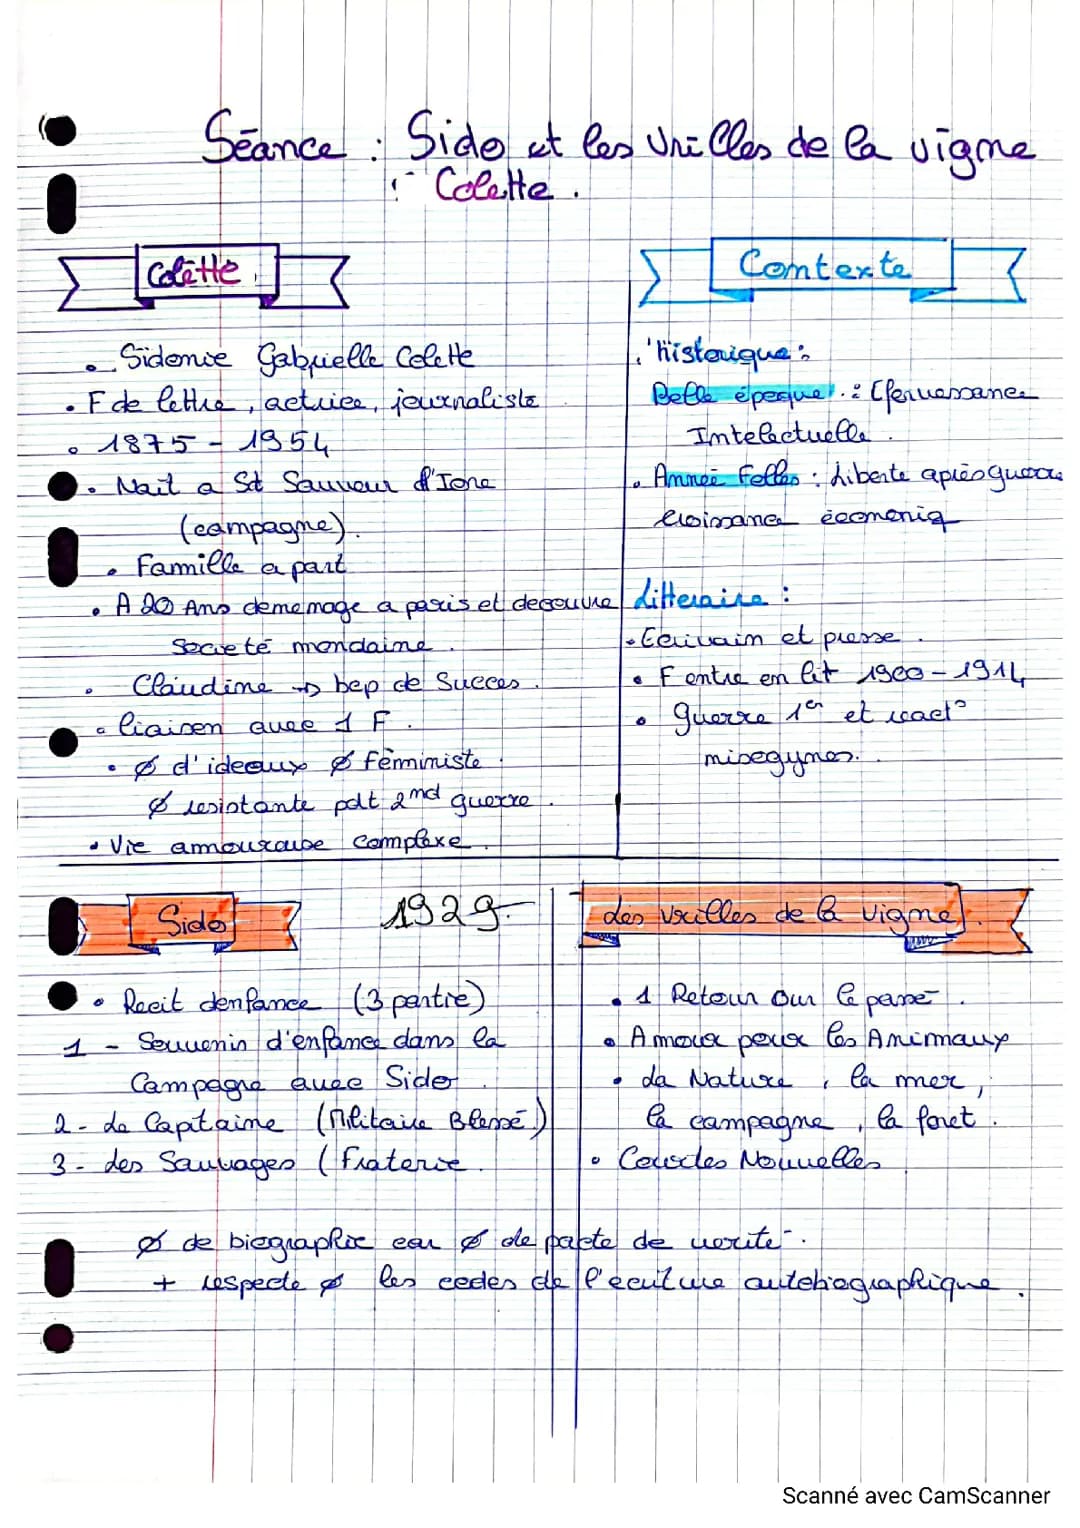 Séance : Sido et les Vrilles de la vigne
: Colette.
Colette.
• Sidonie Gabrielle Colette
• F de lettre, actrice, journaliste
• 1875 - 1954
• Nait a St Sauveur d'Ione
(campagne).
• Famille a part
• A 20 Ans demenage a paris et decouvre
Societé mondaine.
• Claudine → bep de Succes.
• liaison avec 1 F.
• Ø d'ideaux Ø Féministe
Ø resistante pdt 2nd guerre.
• Vie amoureuse complexe.
Contexte
• historique :
Belle époque : Efervessance
Intelectuelle.
• Année Folles : Liberte après guerre
croissance économiq
Litteraire :
• Ecrivain et presse.
• F entre en lit 1900 - 1914
• guerre 1er et react°
misogynes.
Sido 1929.
• Recit denfance (3 partie)
1 - Souvenir d'enfance dans la
Campagne avec Sido.
2 - Le Capitaine (Militaire Blessé)
3 - des Sauvages (Fraterie.
les vrilles de la vigne.
• 1 Retour sur le passé.
• Amour pour les Animaux
• La Nature, la mer,
la campagne, la foret.
• Courtes Nouvelles
Ø de biographie car Ø de pacte de verité.
+ respecte Ø les codes de l'écriture autobiographique.
Scanné avec CamScanner